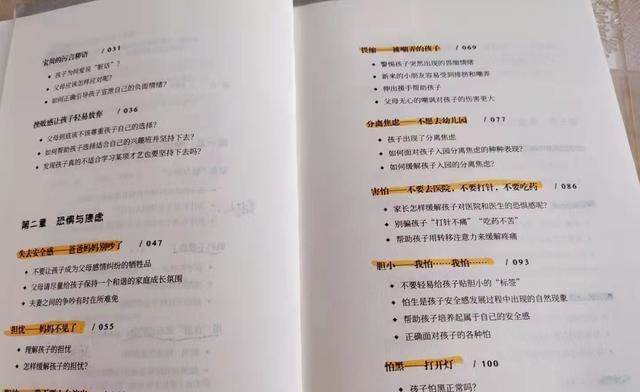 宝贝的污言秽语 / 031
• 孩子为何爱说“脏话”?
• 父母应该怎样应对呢?
• 如何正确引导孩子宣泄自己的负面情绪?
挫败感让孩子轻易放弃 / 036
• 父母到底该不该尊重孩子自己的选择?
• 如何帮助孩子选择适合自己的兴趣班并坚持下去?
• 发现孩子真的不适合学习某项才艺也要坚持下去吗?
第二章 恐惧与焦虑
失去安全感——爸爸妈妈别吵了 / 047
• 不要让孩子成为父母感情纠纷的牺牲品
• 父母请尽量给孩子保持一个和谐的家庭成长氛围
• 夫妻之间的争吵有时在所难免
担忧——妈妈不见了 / 055
• 理解孩子的担忧
• 怎样缓解孩子的担忧?
畏缩——被嘲弄的孩子 / 069
• 警惕孩子突然出现的畏缩情绪
• 新来的小朋友容易受到排挤和嘲弄
• 伸出援手帮助孩子
• 父母无心的嘲讽对孩子的伤害更大
分离焦虑——不愿去幼儿园 / 077
• 孩子出现了分离焦虑
• 如何面对孩子入园分离焦虑的种种表现?
• 如何缓解孩子入园的分离焦虑?
害怕——不要去医院,不要打针,不要吃药 / 086
• 家长怎样缓解孩子对医院和医生的恐惧感呢?
• 别骗孩子“打针不痛”“吃药不苦”
• 帮助孩子用转移注意力来缓解疼痛
胆小——我怕……我怕…… / 093
• 不要轻易给孩子贴胆小的“标签”
• 怕生是孩子安全感发展过程中出现的自然现象
• 帮助孩子培养起属于自己的安全感
• 正确面对孩子的各种怕
怕黑——打开灯 / 100
• 孩子怕黑正常吗?